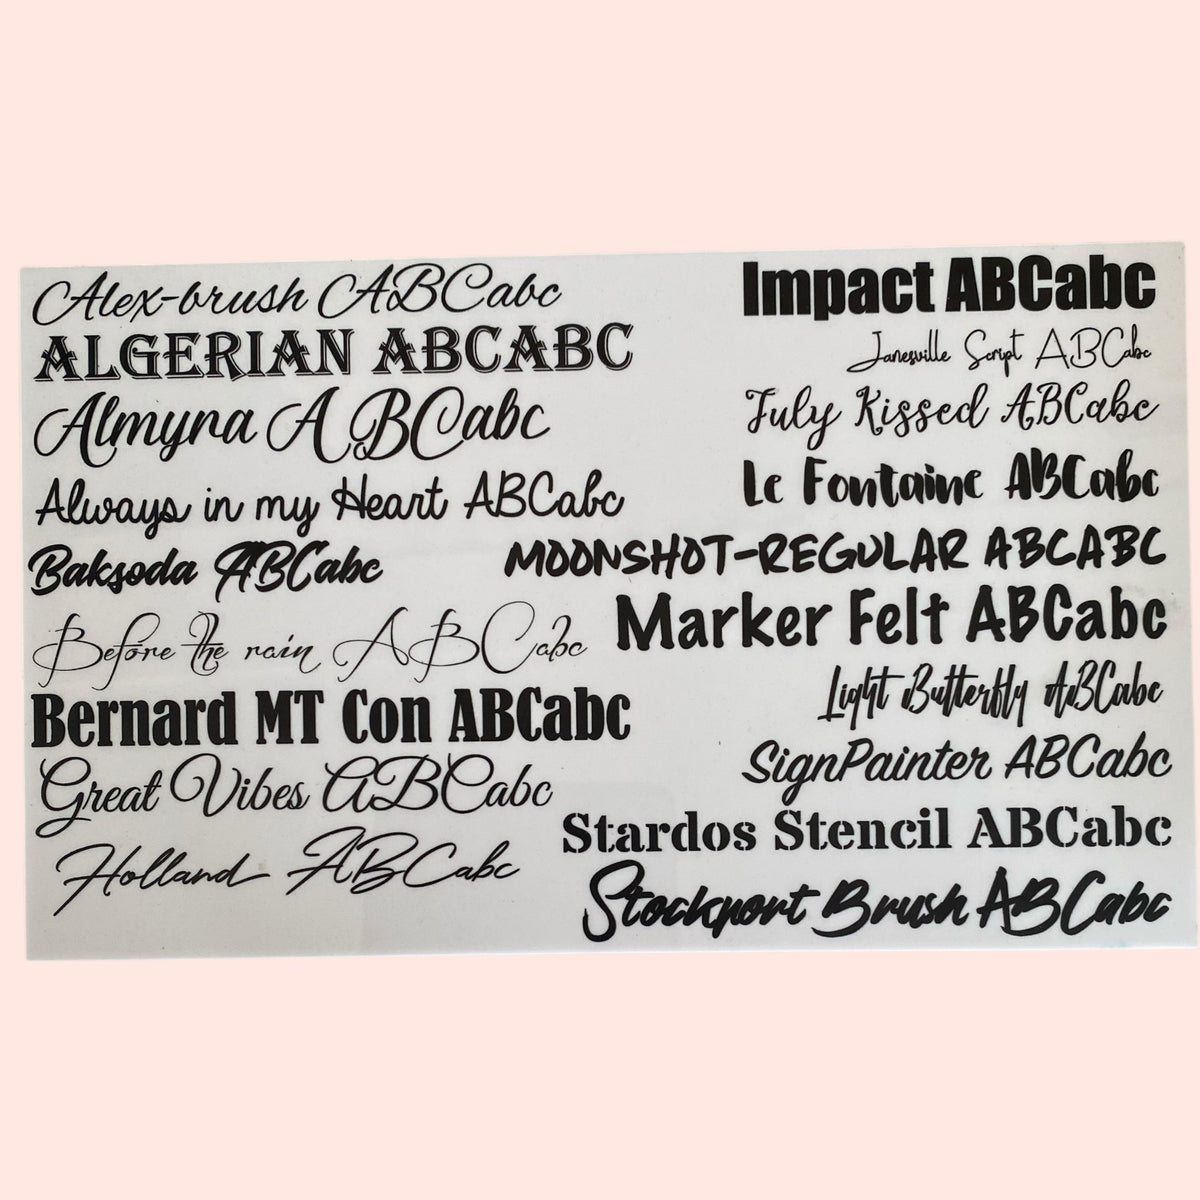 Alex-brush ABCabc
ALGERIAN ABCABC
Almyra ABCabc
Always in my Heart ABCabc
Baksoda ABCabc
Before the rain ABCabc
Bernard MT Con ABCabc
Great Vibes ABCabc
Holland ABCabc
Impact ABCabc
Janesville Script ABCabc
July Kissed ABCabc
Le Fontaine ABCabc
MOONSHOT-REGULAR ABCABC
Marker Felt ABCabc
Light Butterfly ABCabc
SignPainter ABCabc
Stardos Stencil ABCabc
Stockport Brush ABCabc